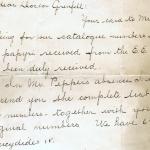 Dear Doctor Grenfell
Your card to Mr
ing for our catalogue numbers
papyri received from the E.E.
been duly received.
In Mr Peppers absence
send you the complete list
numbers together with
ginal numbers. We have
ucydides IV.